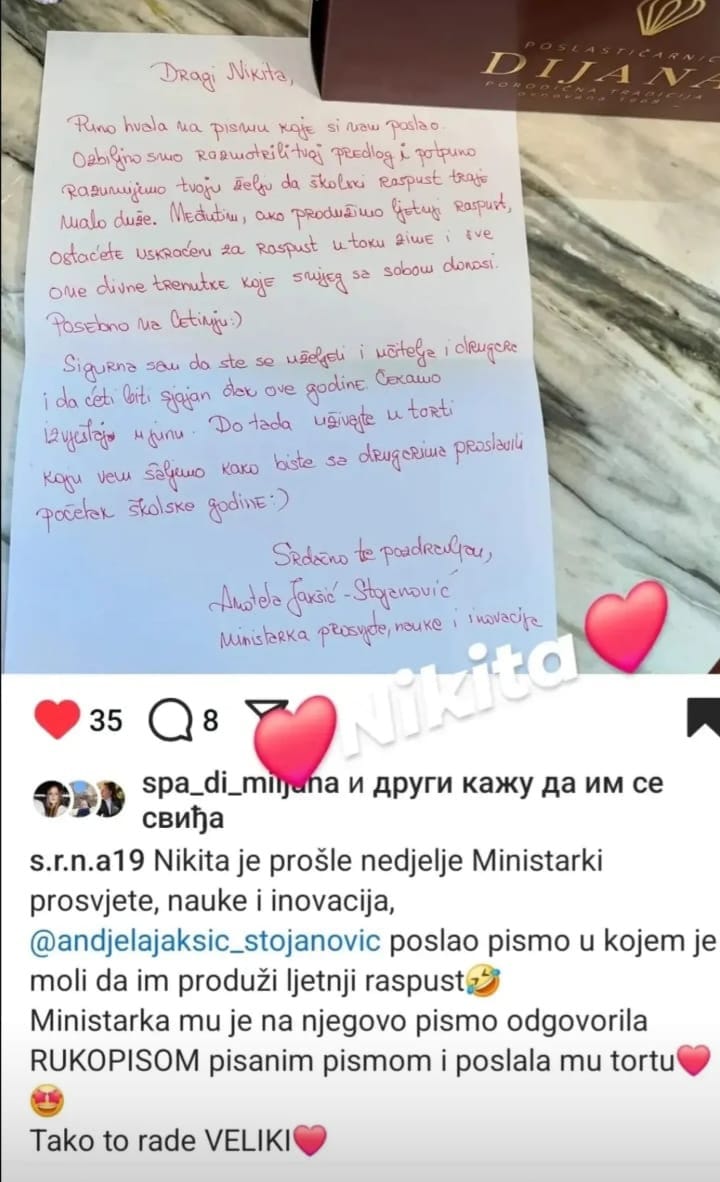 POSLASTIČARNIC
DIJANA
PORODIČNA TRADICIJA
Dragi Nikita,
Puno hvala na pismu koje si nam poslao.
Ozbiljno smo razmotrili tvoj predlog i potpuno
razumijemo tvoju želju da školski raspust traje
malo duže. Međutim, ako produžimo ljetnji raspust,
ostaćete uskraćeni za raspust u toku zime i sve
one divne trenutke koje snijeg sa sobom donosi.
Posebno na Cetinju:)
Sigurna sam da ste se uželjeli i učitelja i drugara
i da ćeš biti sjajan đak ove godine. Čekamo
izvještaj u junu. Do tada uživajte u torti
koju vam šaljemo kako biste sa drugarima proslavili
početak školske godine:)
Srdačno te pozdravljam,
Anđela Jakšić-Stojanović
Ministarka prosvjete, nauke i inovacija
Nikita
35 8
spa_di_miljana и други кажу да им се
свиђа
s.r.n.a19 Nikita je prošle nedjelje Ministarki
prosvjete, nauke i inovacija,
@andjelajaksic_stojanovic poslao pismo u kojem je
moli da im produži ljetnji raspust🤣
Ministarka mu je na njegovo pismo odgovorila
RUKOPISOM pisanim pismom i poslala mu tortu❤️
🤩
Tako to rade VELIKI❤️